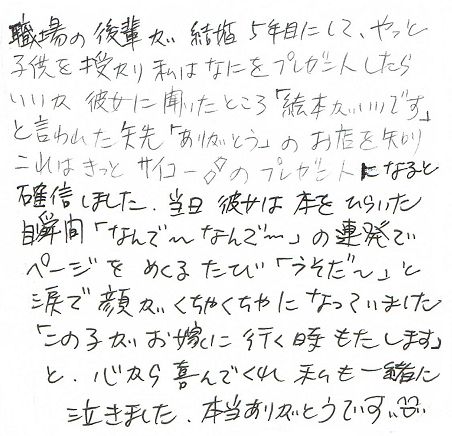 職場の後輩が 結婚 5年目にして、やっと
子供を授かり 私はなにをプレゼントしたら
いいか 彼女に聞いたところ「絵本がいいです」
と言われた矢先「ありがとう」のお店を知り
これはきっと サイコー の プレゼントになると
確信しました. 当日 彼女は 本を ひらいた
瞬間「なんで〜なんで〜」の連発で
ページを めくる たび「うそだ〜」と
涙で 顔が くちゃくちゃになっていました
「この子が お嫁に 行く時 もたします」
と. 心から 喜んでくれ 私も 一緒に
泣きました. 本当ありがとうです